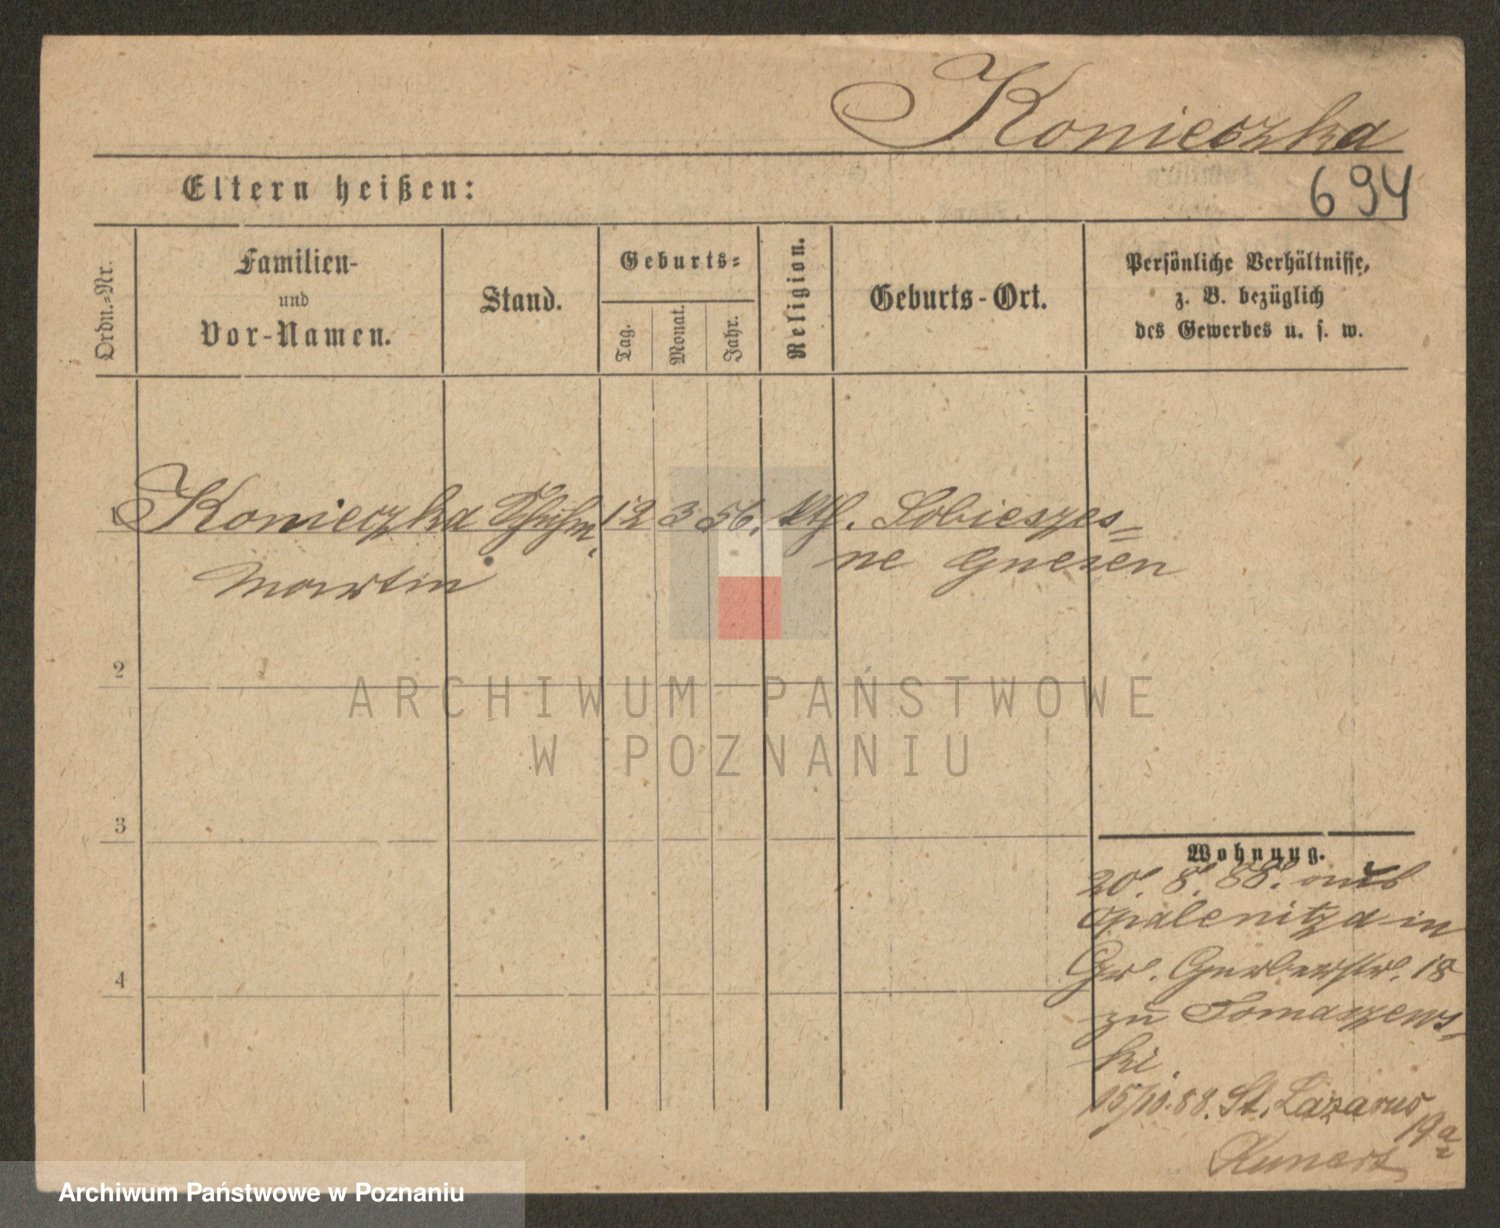 Konieczka
Eltern heißen:
694
Ordn.-Nr.
Familien-
und
Vor-Namen.
Stand.
Geburts-
Tag.
Monat.
Jahr.
Religion.
Geburts-Ort.
Persönliche Verhältnisse,
z. B. bezüglich
des Gewerbes u. s. w.
Konieczka Schuhm. 12 3 56. kth. Sobieszes=
Martin ne Gnesen
2
ARCHIWUM PAŃSTWOWE
W POZNANIU
3
Wohnung.
20. 8. 88. aus
Opalenitza in
Gr. Gerberstr. 18
zu Tomaszews=
ki.
4
15/10.88. St. Lazarus
19a
Kunert
Archiwum Państwowe w Poznaniu